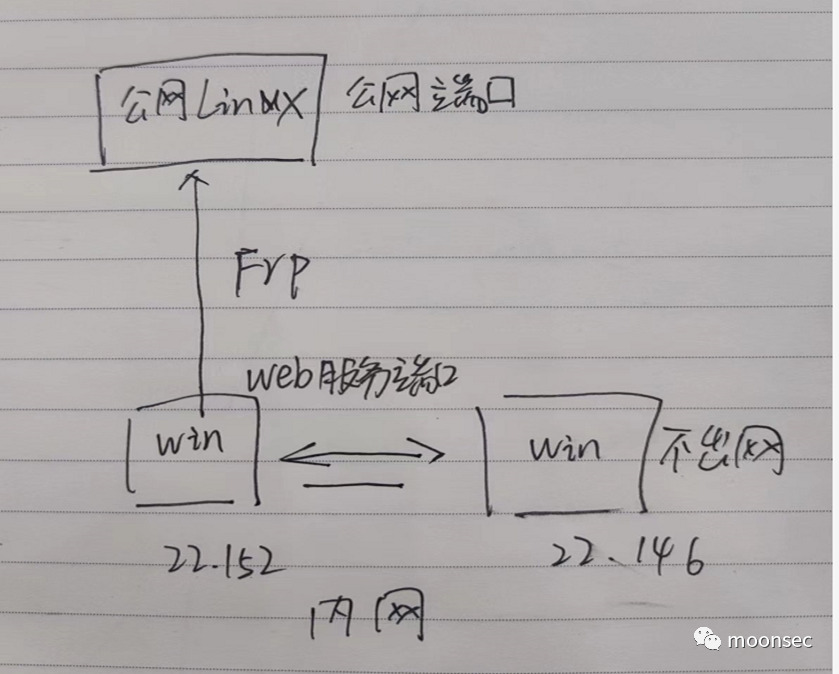 公网Linux 公网端口
Frp
web服务端口
win
win 不出网
22.152
22.146
内网
moonsec